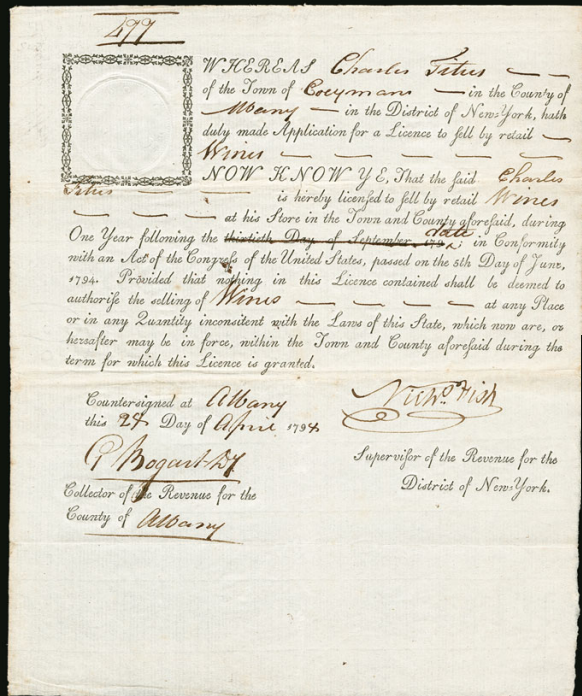 499
WHEREAS Charles Titus — —
of the Town of Coeymans — in the County of
Albany — in the District of New-York, hath
duly made Application for a Licence to ſell by retail —
Wines — — — — — —
NOW KNOW YE, That the ſaid Charles
Titus — — — is hereby licenſed to ſell by retail Wines
— — — — at his Store in the Town and County aforeſaid, during
date
One Year following the thirtieth Day of September, 179 ; in Conformity
with an Act of the Congreſs of the United States, paſſed on the 5th Day of June,
1794. Provided that nothing in this Licence contained shall be deemed to
authoriſe the selling of Wines — — — — — at any Place
or in any Quantity inconsitent with the Laws of this State, which now are, or
hereafter may be in force, within the Town and County aforeſaid during the
term for which this Licence is granted.
Countersigned at Albany
this Day of April 179
Nichs. Fish
G Bogart
Superviſor of the Revenue for the
District of New-York.
Collector of the Revenue for the
County of Albany